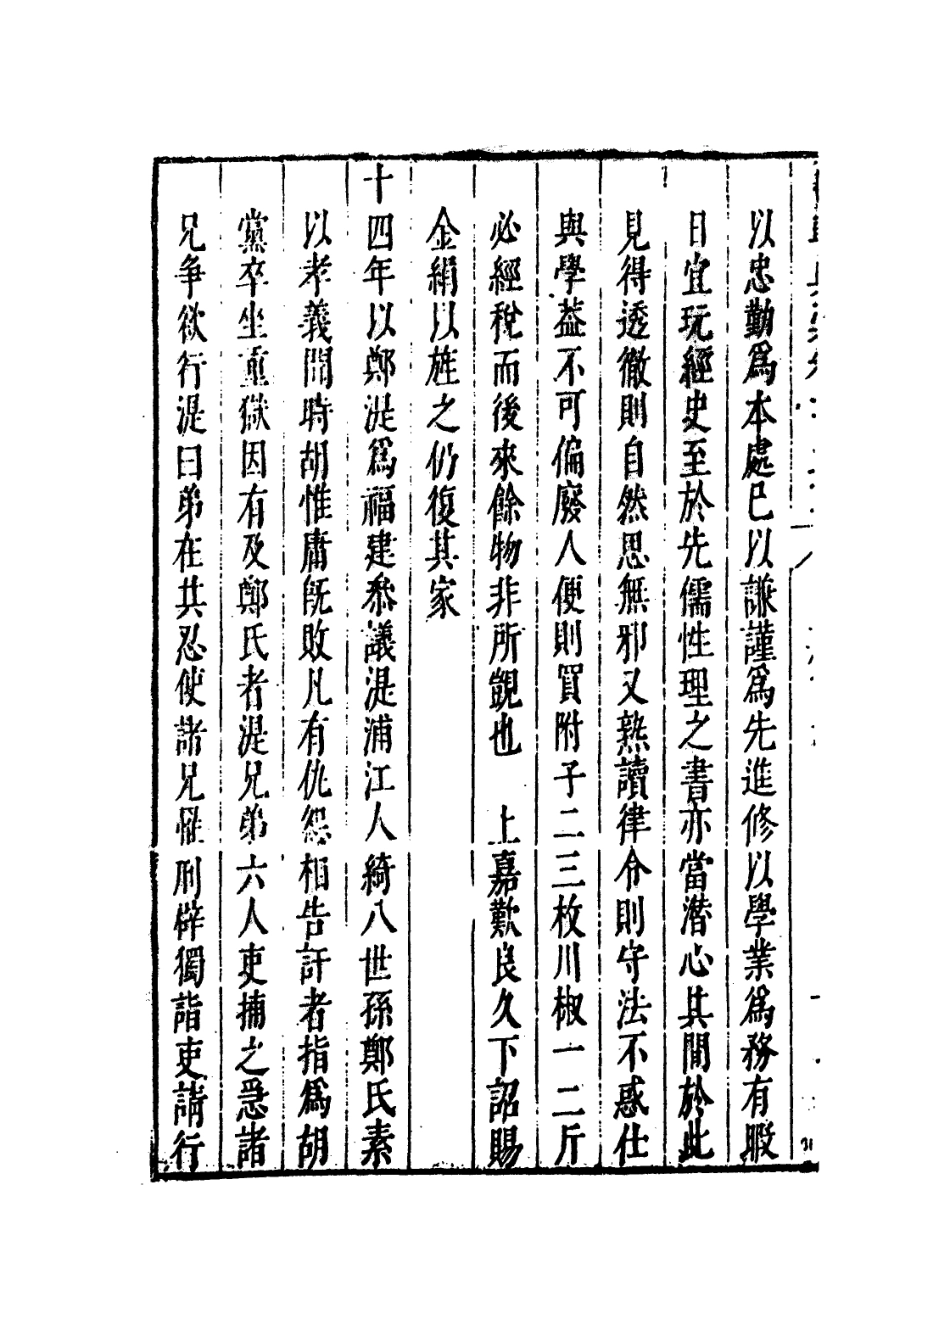 以忠勤爲本處已以謙謹爲先進修以學業爲務有暇
日宜玩經史至於先儒性理之書亦當潛心其間於此
見得透徹則自然思無邪又熟讀律令則守法不惑仕
與學葢不可偏廢人便則買附子二三枚川椒一二斤
必經稅而後來餘物非所覬也　上嘉歎良久下詔賜
金絹以旌之仍復其家
十四年以鄭湜爲福建叅議湜浦江人綺八世孫鄭氏素
以孝義聞時胡惟庸旣敗凡有仇怨相告訐者指爲胡
黨卒坐重獄因有及鄭氏者湜兄弟六人吏捕之急諸
兄爭欲行湜曰弟在其忍使諸兄罹刑辟獨詣吏請行